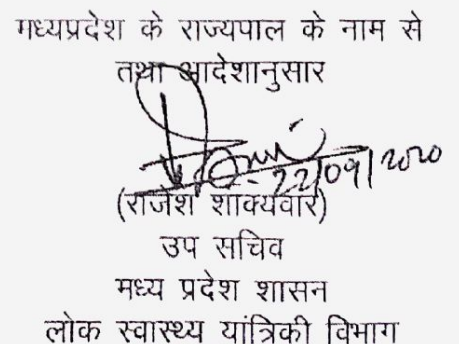 मध्यप्रदेश के राज्यपाल के नाम से
तथा आदेशानुसार
22/09/2020
(राजेश शाक्यवार)
उप सचिव
मध्य प्रदेश शासन
लोक स्वास्थ्य यांत्रिकी विभाग